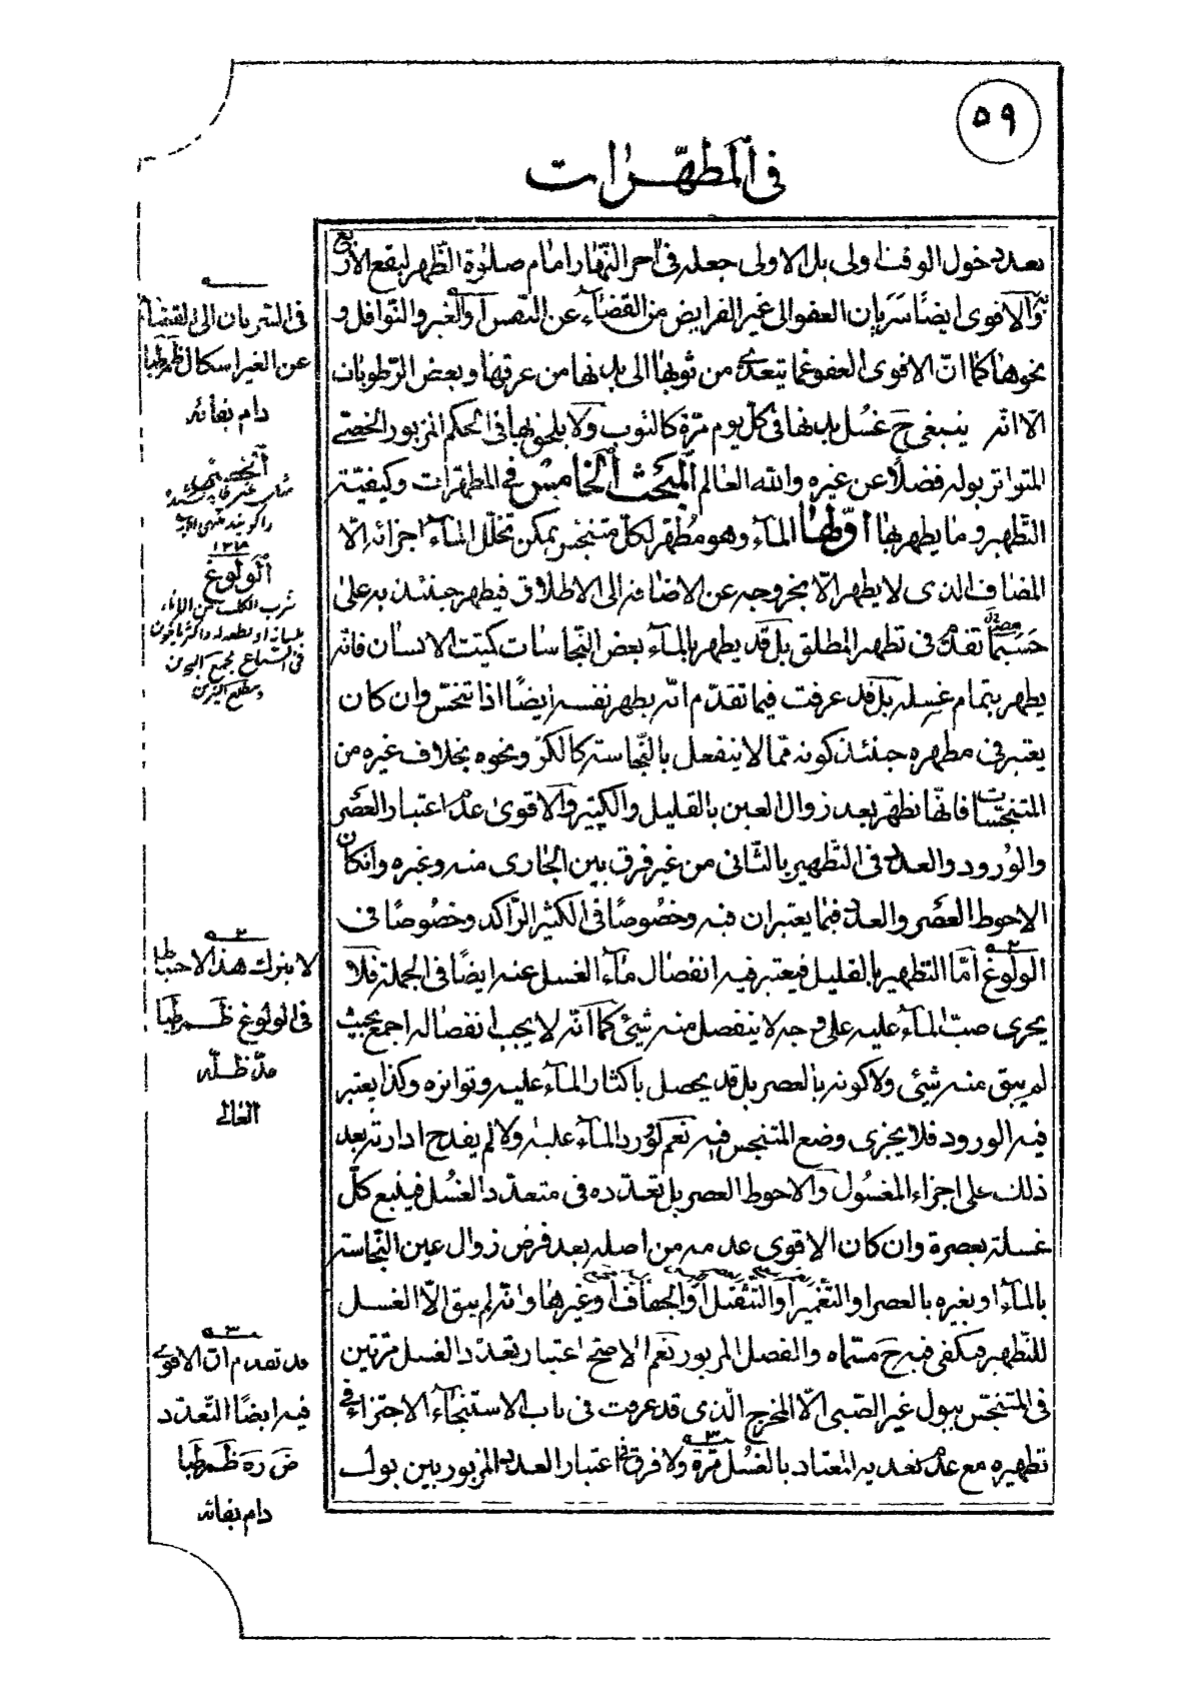 ٥٩
في المطهّرات
بعد دخول الوقت اولى بل الاولى جعله في آخر النّهار امام صلوة الظّهر ليقع الاربع
والاقوى ايضًا سَرَيان العفو الى غير الفرايض من القضآء عن النّفس او الغير والنّوافل و
نحوها كما انّ الاقوى العفو عمّا يتعدّى من ثوبها الى بدنها من عرقها وبعض الرّطوبات
الّا انّه ينبغي ح غسل بدنها في كلّ يوم مرّة كالثوب ولا يلحق بها في الحكم المزبور الخصيّ
المتواتر بوله فضلًا عن غيره والله العالم المبحث الخامس في المطهّرات وكيفيّة
التّطهير وما يطهر بها اوّلها المآء وهو مُطهّر لكلّ متنجّس يمكن تخلّل المآء اجزائه الّا
المضاف الذى لا يطهر الّا بخروجه عن الاضافة الى الاطلاق فيطهر حينئذ به على
حَسَبما تقدّم في تطهير المطلق بل قد يطهر بالمآء بعض النّجاسات كميّت الانسان فانّه
يطهر بتمام غسله بل قد عرفت فيما تقدّم انّه يطهر نفسه ايضًا اذا تنجّس وان كان
يعتبر في مطهره حينئذ كونه ممّا لا ينفعل بالنّجاسة كالكرّ ونحوه بخلاف غيره من
المتنجّسات فانّها تطهر بعد زوال العين بالقليل والكثير والاقوى عدم اعتبار العصر
والوُرود والعدد في التّطهير بالثّاني من غير فرق بين الجارى منه وغيره وان كان
الاحوط العصر والعدد فيما يعتبران فيه وخصُوصًا في الكثير الرّاكد وخصُوصًا في
الولُوغ امّا التطهير بالقليل فيعتبر فيه انفصال مآء الغسل عنه ايضًا في الجملة فلا
يجزى صبّ المآء عليه على وجه لا ينفصل منه شيئ كما انّه لا يجب انفصاله اجمع بحيث
لم يبق منه شيئ ولا كونه بالعصر بل قد يحصل باكثار المآء عليه وتواتره وكذا يعتبر
فيه الورود فلا يجزى وضع المتنجس فيه نعم لو ورد المآء عليه ولا لم يقدح ادارته بعد
ذلك على اجزاء المغسُول والاحوط العصر بل تعدّده في متعدّد الغسل فيتبع كلّ
غسلة بعصرة وان كان الاقوى عدمه من اصله بعد فرض زوال عين النّجاسة
بالمآء او بغيره بالعصر او التغمير او التثقيل او الجفاف او غيرها وانّه لم يبق الّا الغسل
للتّطهير فيكفى فيه ح مسمّاه والفصل المزبور نعم الاصحّ اعتبار تعدّد الغسل مرّتين
في المتنجّس ببول غير الصّبى الّا المخرج الّذى قد عرفت في باب الاستنجآء الاجتزاء في
تطهيره مع عدم تعديه المعتاد بالغسل مرّة ولا فرق في اعتبار العدد المزبور بين بول
في السّريان الى القضآء
عن الغير اشكال ظم طبا
دام بقائه
الولوغ
شرب الكلب من الاناء
٢
لا يترك هذا الاحتياط
في الولوغ ظم طبا
مدّ ظلّه
العالى
٣
قد تقدم انّ الاقوى
فيه ايضًا التّعدّد
ض ره ظم طبا
دام بقائه